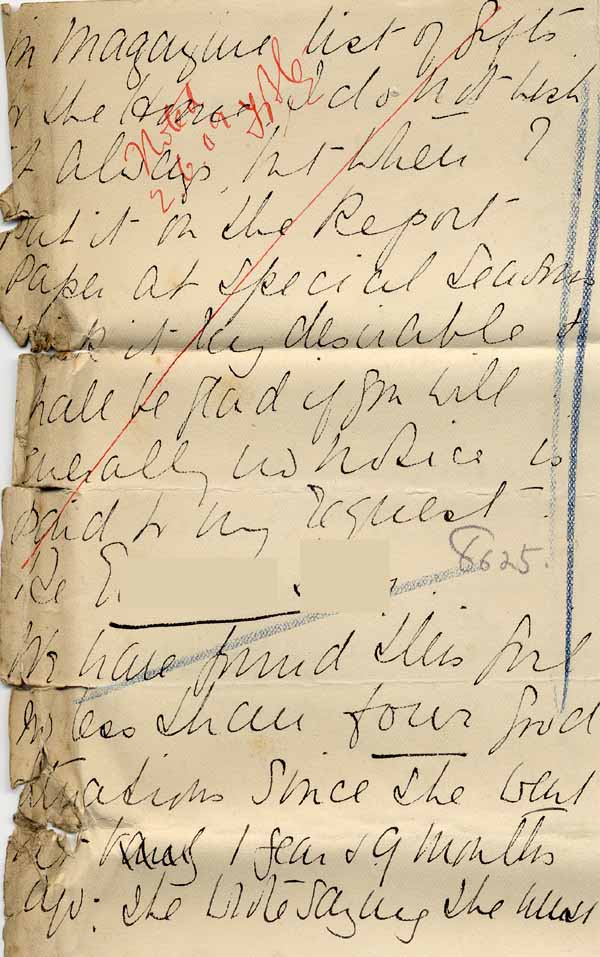 in Magazine list of Gifts
or the Home. I do not wish
it always, but when ?
put it on the Report
Paper at special seasons
think it very desirable &
shall be glad if you will
generally no notice is
paid to my request
Noted
2.6.09
Re E.
8625.
We have found this girl
no less than four good
situations since she went
1 year & 9 months
ago: she wrote saying she must